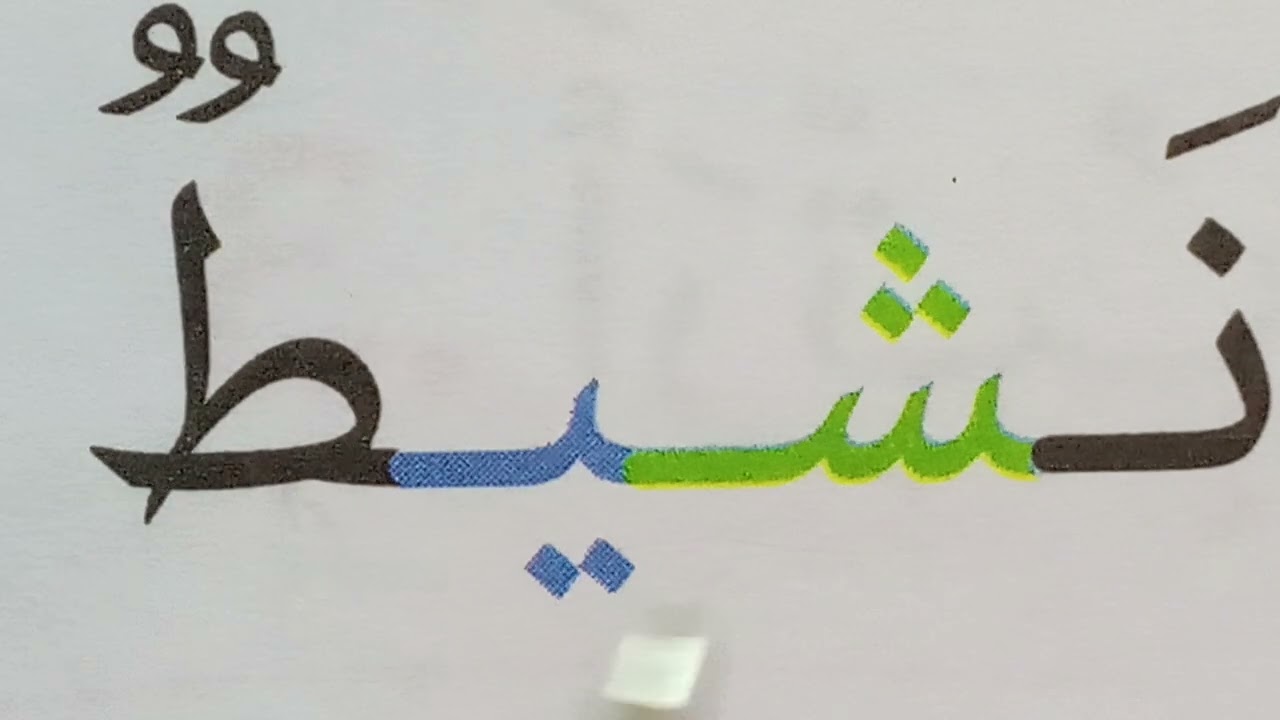 نَشيطٌ